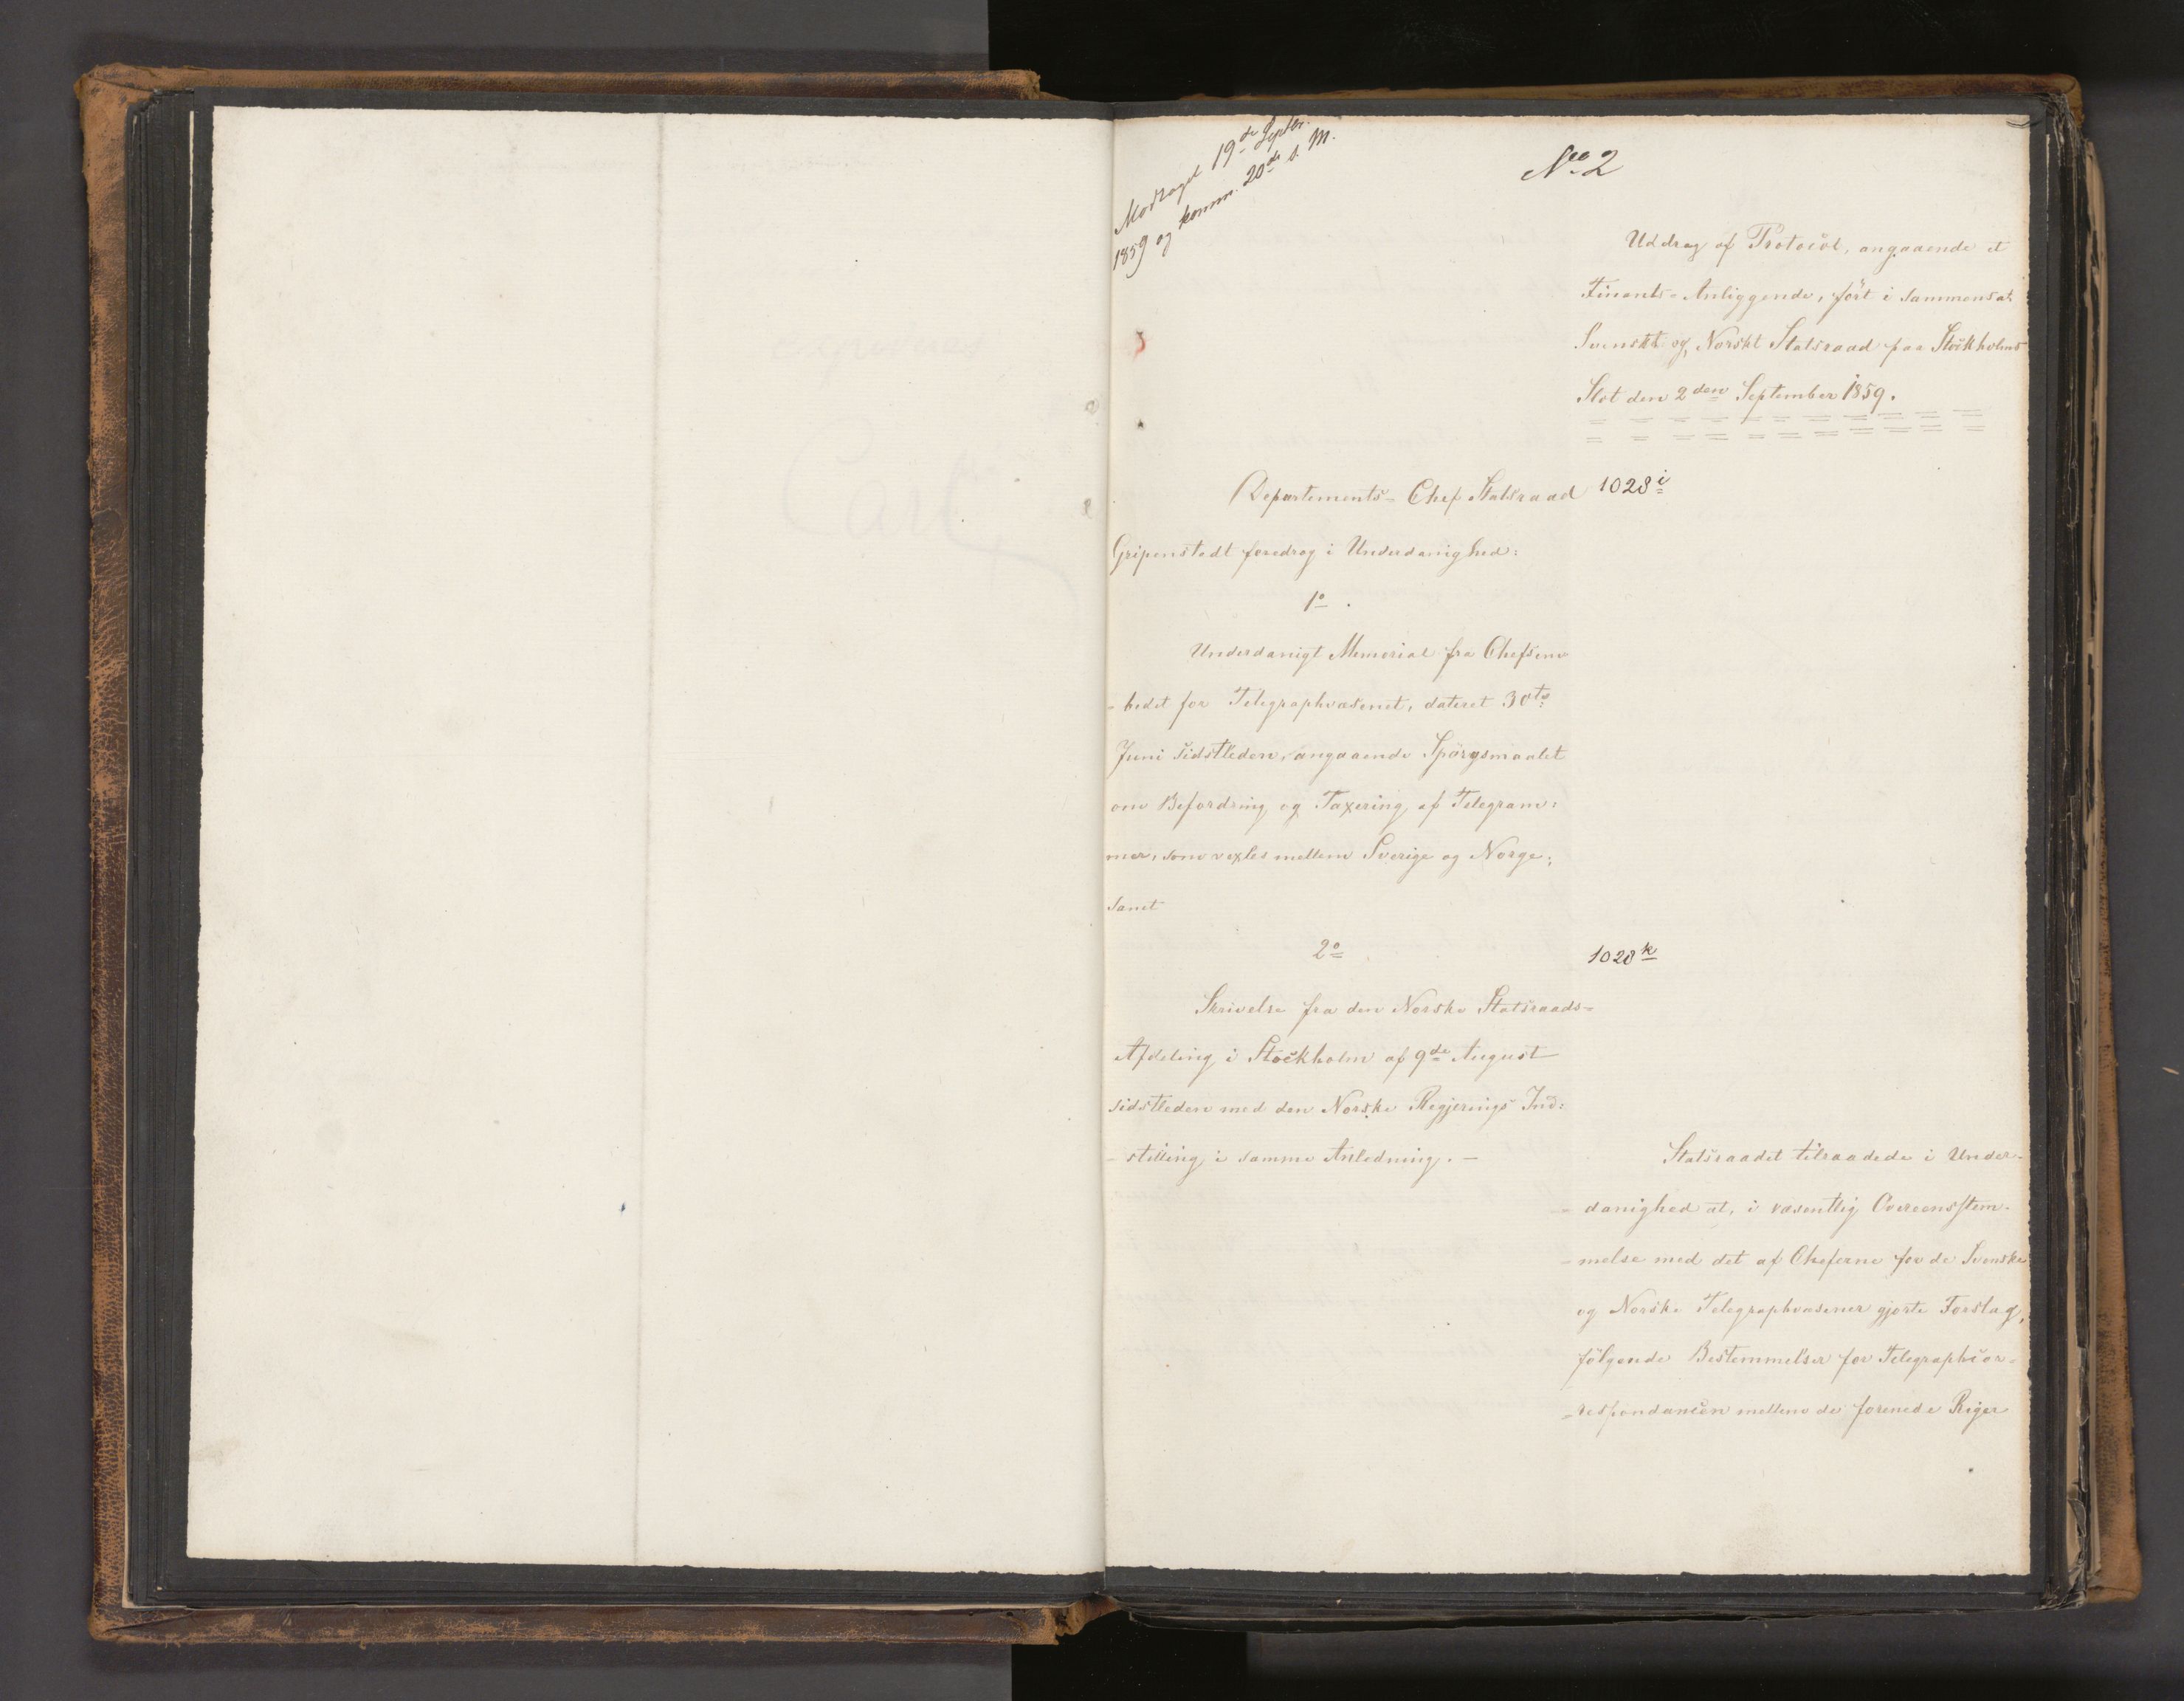 Modtaget 19de Septbr.
1859 og komm. 20de s. M.
No 2
Uddrag af Protocol, angaaende et
Finants-Anliggende, fört i sammensat
Svenskt og Norskt Statsraad paa Stockholms
Slot den 2den September 1859.
Departements-Chef Statsraad
1028i
Gripenstedt foredrog i Underdanighed:
1o.
Underdanigt Memorial fra Chefsem-
-bedet for Telegraphvæsenet, dateret 30te
Juni sidstleden, angaaende Spörgsmaalet
om Befordring og Taxering af Telegram:
mer, som vexles mellem Sverige og Norge;
samt
2o
1028k
Skrivelse fra den Norske Statsraads-
Afdeling i Stockholm af 9de August
sidstleden med den Norske Regjerings Ind:
-stilling i samme Anledning. -
Statsraadet tilraadede i Under-
-danighed at, i væsentlig Overeensstem-
-melse med det af Cheferne for de Svenske
og Norske Telegraphvæsener gjorte Forslag,
fölgende Bestemmelser for Telegraphcor-
-respondancen mellem de forenede Riger